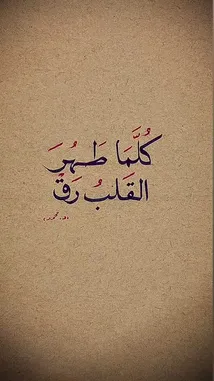 كُلَّمَا طَهُرَ
القَلبُ رَقَّ